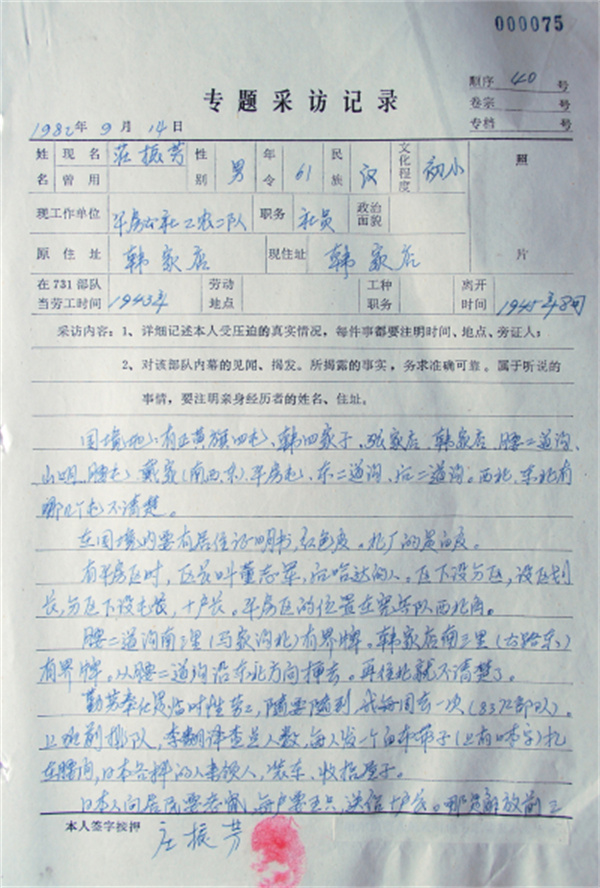 000075
顺序 40 号
专题采访记录
卷宗 号
1982年9月14日
专档 号
姓名 现名 庄振芳 性别 男 年令 61 民族 汉 文化程度 初小 照片
曾用
现工作单位 平房公社工农二队 职务 社员 政治面貌
原住址 韩家店 现住址 韩家店
在731部队当劳工时间 1943年 劳动地点 工种职务 离开时间 1945年8月
采访内容：1、详细记述本人受压迫的真实情况，每件事都要注明时间、地点、旁证人；
2、对该部队内幕的见闻、揭发。所揭露的事实，务求准确可靠。属于听说的
事情，要注明亲身经历者的姓名、住址。
国境地：有正黄旗四屯、韩四家子、张家店、韩家店、腰二道沟、
腰屯、戴家(南西东)、平房屯、东二道沟、后二道沟。西北、东北有
哪几个屯不清楚。
在国境内要有居住证明书,红色皮。扎厂的是白皮。
有平房区时，区长叫董志军，哈达的人。区下设分区，设区划
长,分区下设屯长，十户长。平房区的位置在宪兵队西北角。
腰二道沟南三里(马家沟北)有界牌。韩家店南三里(东)
有界牌。从腰二道沟沿东北方向插去。再往北就不清楚了。
勤劳奉仕是临时性劳工,随要随到,我每周去一次(8372部队)。
上班前排队，李翻译查点人数,每人发一个白布带子(上有日本字)扎
在腰间,日本各科的人来领人,装车、收拾屋子。
日本人向居民要老鼠，每户要五只,送给十户长。那是解放前
本人签字按押 庄振芳